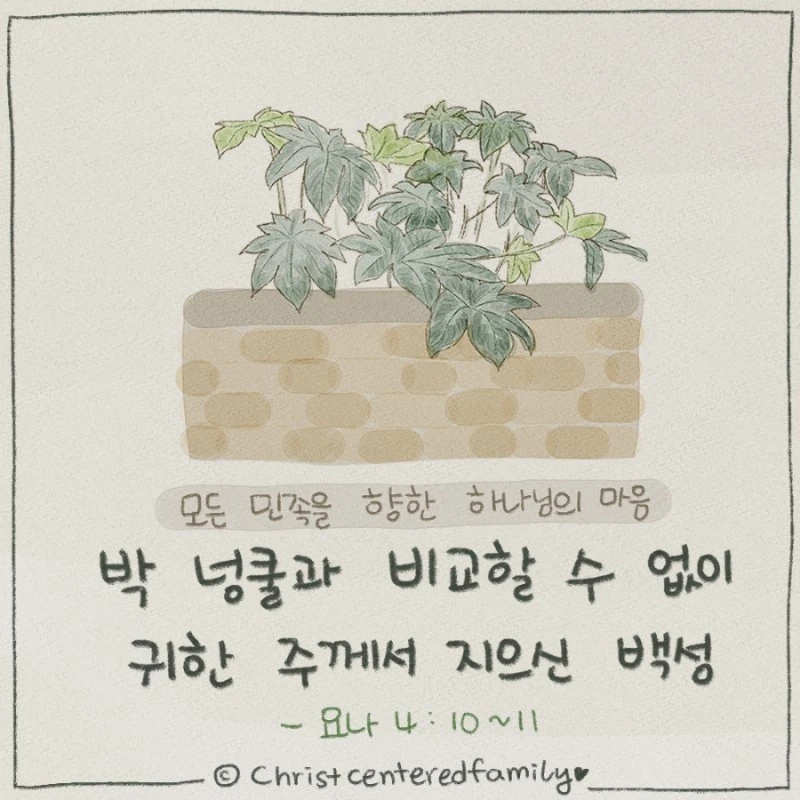 모든 민족을 향한 하나님의 마음
박 넝쿨과 비교할 수 없이
귀한 주께서 지으신 백성
- 요나 4 : 10~11
© Christcenteredfamily♥